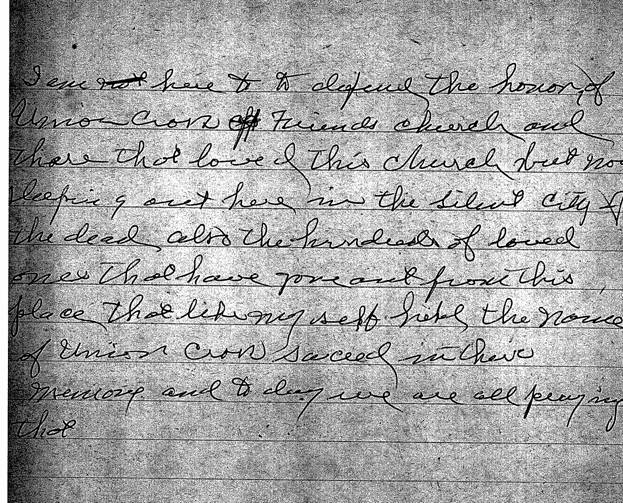 I am not here to to defend the honor of
Union Cross Friends church and
those that loved this church but now
sleeping out here in the silent city of
the dead also the hundreds of loved
ones that have gone out from this
place that like my self held the name
of Union Cross sacred in there
memory and to day we are all praying
that